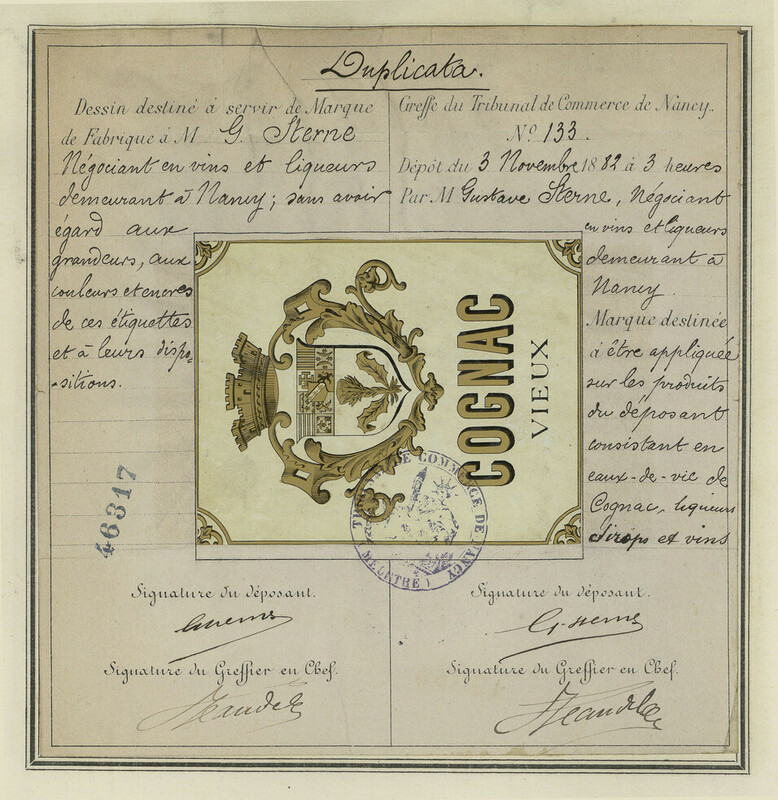 Duplicata.
Dessin destiné à servir de Marque
de Fabrique à M G. Sterne
Négociant en vins et liqueurs
demeurant à Nancy; sans avoir
égard aux
grandeurs, aux
couleurs et encres
de ces étiquettes
et à leurs dispo-
-sitions.
46317
Greffe du Tribunal de Commerce de Nancy.
N° 133.
Dépôt du 3 Novembre 1882 à 3 heures
Par M Gustave Sterne, Négociant
en vins et liqueurs
demeurant à
Nancy
Marque destinée
à être appliquée
sur les produits
du déposant
consistant en
eaux-de-vie de
Cognac, liqueurs
Sirops et vins
COGNAC
VIEUX
TRIBUNAL DE COMMERCE DE NANCY
(MEURTHE)
Signature du déposant.
G. Sterne
Signature du Greffier en Chef.
Signature du déposant.
G. Sterne
Signature du Greffier en Chef.